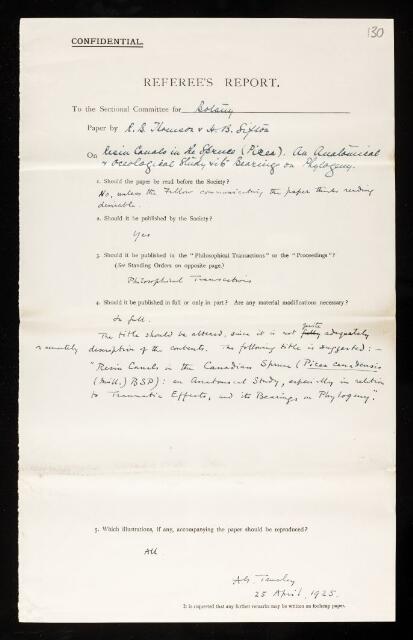 130
CONFIDENTIAL.
REFEREE'S REPORT.
To the Sectional Committee for Botany
Paper by R. B. Thomson & H. B. Sifton
On Resin Canals in the Spruce (Picea). An Anatomical
& Oecological Study & its Bearing on Phylogeny.
1. Should the paper be read before the Society?
No, unless the Fellow communicating the paper thinks reading
desirable.
2. Should it be published by the Society?
Yes
3. Should it be published in the "Philosophical Transactions" or the "Proceedings"?
(See Standing Orders on opposite page.)
Philosophical Transactions
4. Should it be published in full or only in part? Are any material modifications necessary?
In full.
The title should be altered, since it is not quite adequately
descriptive of the contents. The following title is suggested:—
"Resin Canals in the Canadian Spruce (Picea canadensis
(Mill.) BSP): an Anatomical Study, especially in relation
to Traumatic Effects, and its Bearings on Phylogeny".
5. Which illustrations, if any, accompanying the paper should be reproduced?
All
A.G. Tansley
25 April, 1925.
It is requested that any further remarks may be written on foolscap paper.